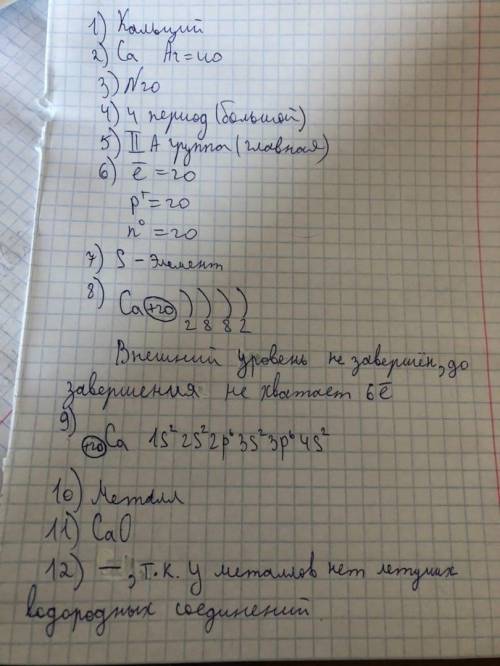 1) Кальций
2) Ca Ar=40
3) N20
4) 4 период (большой)
5) II A группа (главная)
6) ē = 20
p⁺ = 20
n⁰ = 20
7) S - элемент
8)
Ca +20 ) ) ) )
2 8 8 2
Внешний уровень не завершён, до
завершения не хватает 6ē
9)
+20 Ca 1S² 2S² 2p⁶ 3S² 3p⁶ 4S²
10) Металл
11) CaO
12) —, т.к. у металлов нет летучих
водородных соединений.